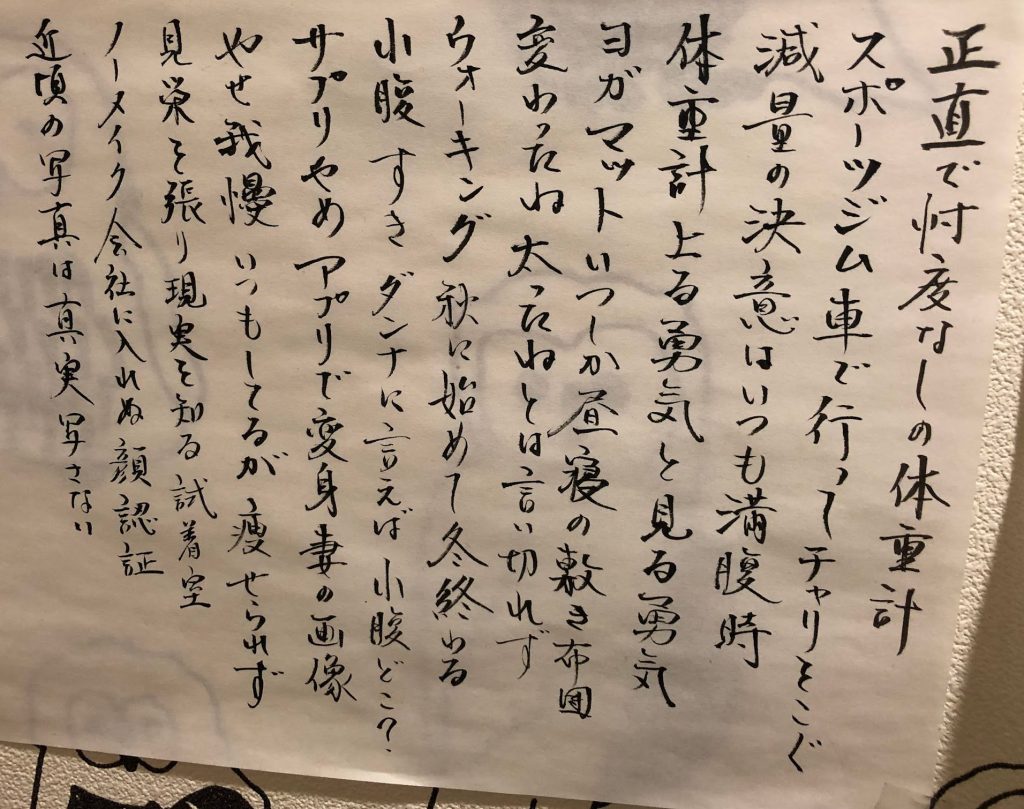 正直で忖度なしの体重計
スポーツジム車で行ってチャリをこぐ
減量の決意はいつも満腹時
体重計上る勇気と見る勇気
ヨガマットいつしか昼寝の敷き布団
変わったね太ったねとは言い切れず
ウォーキング秋に始めて冬終わる
小腹すきダンナに言えば小腹どこ?
サプリやめアプリで変身妻の画像
やせ我慢いつもしてるが痩せられず
見栄を張り現実を知る試着室
ノーメイク会社に入れぬ顔認証
近頃の写真は真実写さない